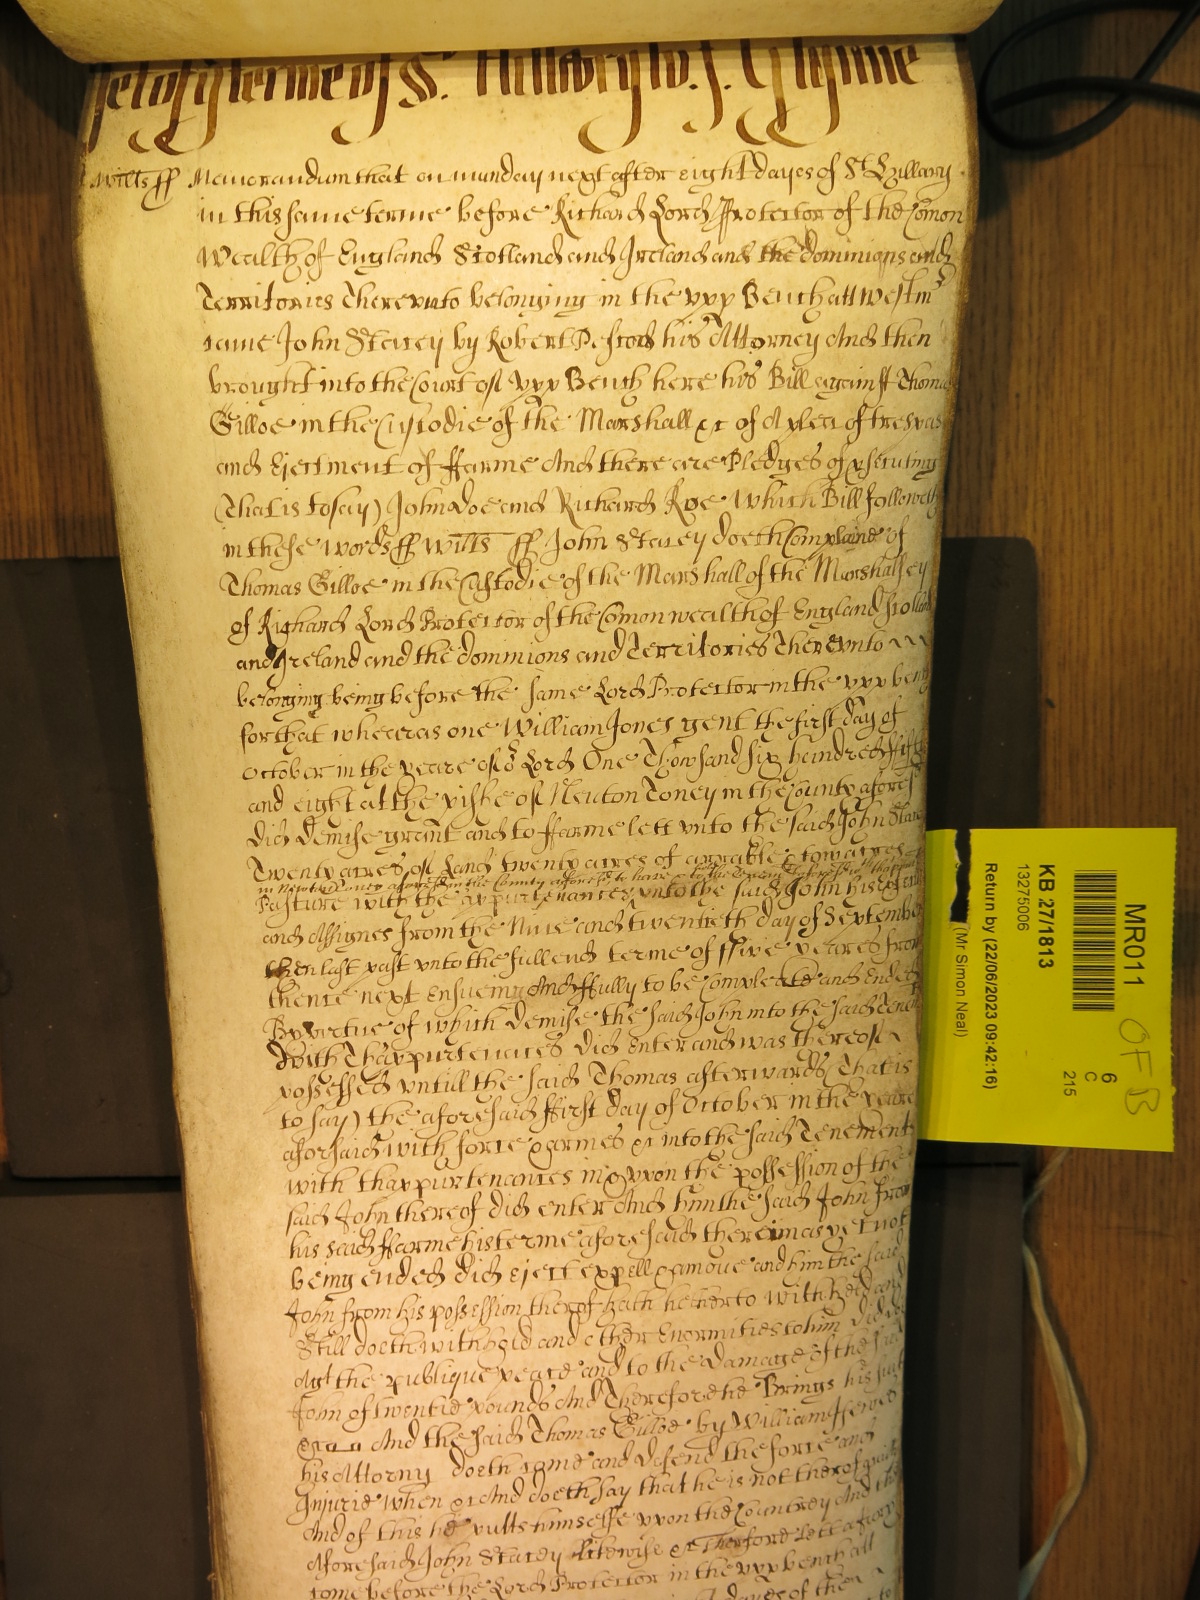 yet of ye terme of St. Hillary
Wilts ff Memorandum that on munday next after eight dayes of St Hillary
in this same terme before Richard Lord Protector of the Comon
Wealth of England Scotland and Ireland and the dominions and
Territories Thereunto belonging in the upp Bench att Westmr
came John Stacey by Robert his Attorney And then
brought into the Court of upp Bench here his Bill against Thomas
Gilloe in the Custodie of the Marshall &c of A plea of trespas
and Ejectment of ffarme And there are Pledges of psecuting
(That is to say) John doe and Richard Roe Which Bill followeth
in these words ff Wilts ff John Stacey doeth Complaine of
Thomas Gilloe in the Custodie of the Marshall of the Marshalsey
of Richard Lord Protector of the Comon wealth of England Scotland
and Ireland and the dominions and Territories Thereunto
belonging being before the same Lord Protector in the upp bench
for that wheras one William Jones gent the first day of
October in the yeare of or Lord One Thowsand six hundred ffiftie
and eight at the pishe of Newton Toney in the County aforesd
did demise grant and to ffarme lett unto the said John Stacey
Twenty acres of Land twenty acres of arrable & tow acres
in Newton Toney aforesd in the County aforesd to have & to the
Pasture with the appurtenances unto the said John his
and Assignes from the Nine and twentieth day of September
then last past unto the full end & terme of ffive yeares from
thence next Ensueing And ffully to be Compleated and Ended
By vertue of which demise the said John into the said
With Thappurtenances did Enter and was thereof
possessed untill the said Thomas afterwards (That is
to say) the aforesaid ffirst day of October in the yeare
aforsaid with force & armes &c into the said Tenements
with thappurtenances in & upon the possession of the
said John thereof did enter And him the said John from
his said ffarme his terme aforesaid therein as yet not
being ended did eject expell & amove and him the said
John from his possession therof hath hetherto withheld and
Still doeth withhold and other Enormities to him did
Agt the publique peace and to the damage of the said
John of twentie pounds And Therefore he Brings his suit
&c And the said Thomas Gilloe by William
his Attorny doeth come and defend the force and
Injurie when &c And doeth say that he is not therof guilty
And of this he putts himselfe upon the Countrey And the
Aforesaid John Stacey likewise &c Therfore lett a Jury
come before the Lord Protector in the upp bench att
dayes of the
MR011
KB 27/1813
13275006
Return by (22/06/2023 09:42:16)
(Mr Simon Neal)
6
C
215
OFB